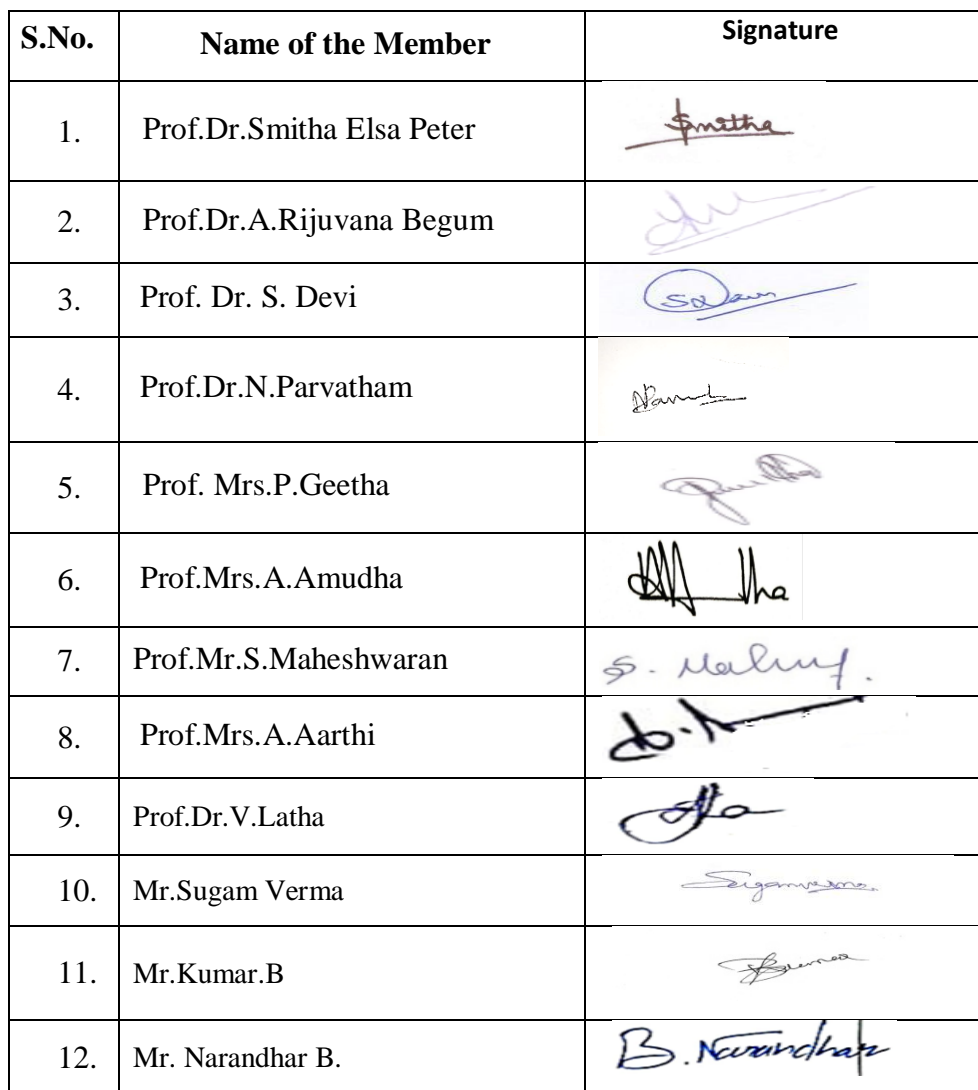 S.No. Name of the Member Signature
1. Prof.Dr.Smitha Elsa Peter Smitha
2. Prof.Dr.A.Rijuvana Begum
3. Prof. Dr. S. Devi
4. Prof.Dr.N.Parvatham
5. Prof. Mrs.P.Geetha
6. Prof.Mrs.A.Amudha
7. Prof.Mr.S.Maheshwaran
8. Prof.Mrs.A.Aarthi
9. Prof.Dr.V.Latha
10. Mr.Sugam Verma Sugamverma.
11. Mr.Kumar.B
12. Mr. Narandhar B. B. Narandhar